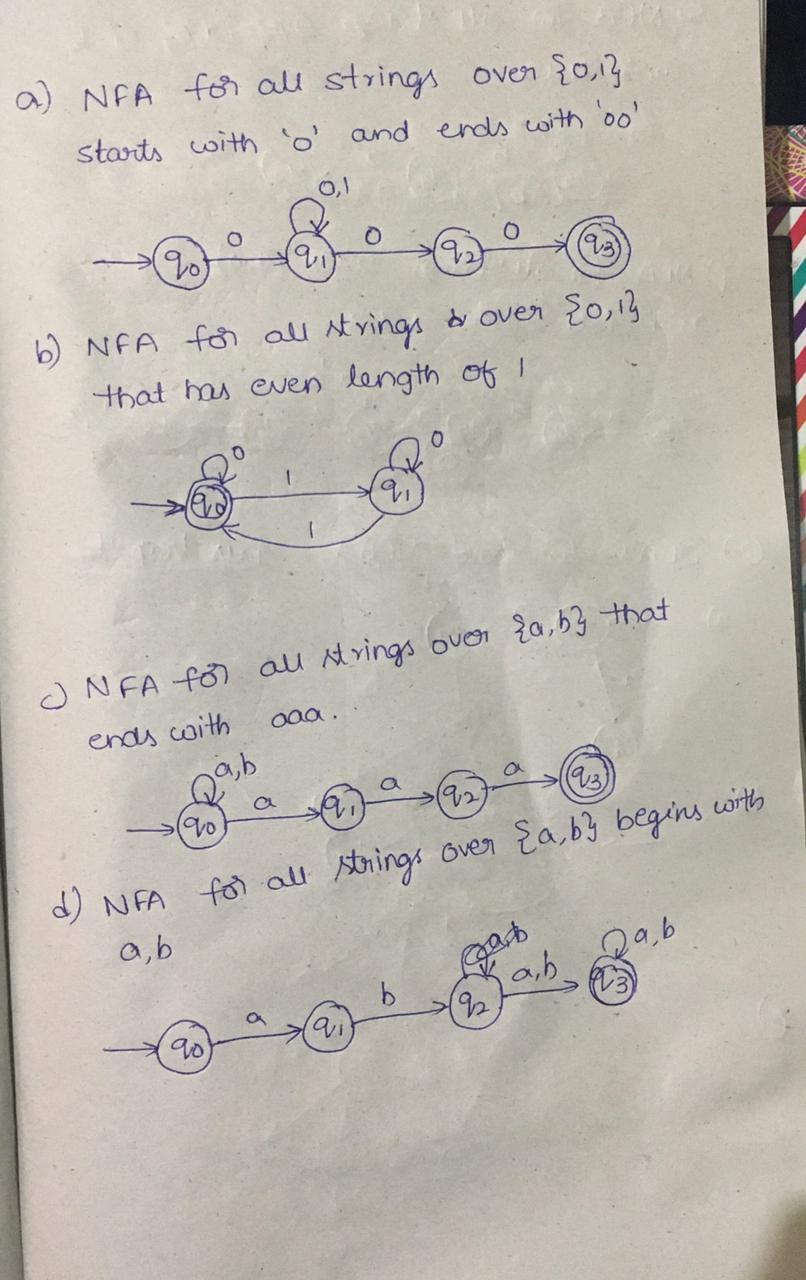 a) NFA for all strings over {0,1}
starts with '0' and ends with '00'
0,1
q0 0 q1 0 q2 0 q3
b) NFA for all strings over {0,1}
that has even length of 1
0 0
q0 1 q1
1
c) NFA for all strings over {a,b} that
ends with aaa.
a,b
q0 a q1 a q2 a q3
d) NFA for all strings over {a,b} begins with
a,b
a,b
q0 a q1 b q2 a,b q3